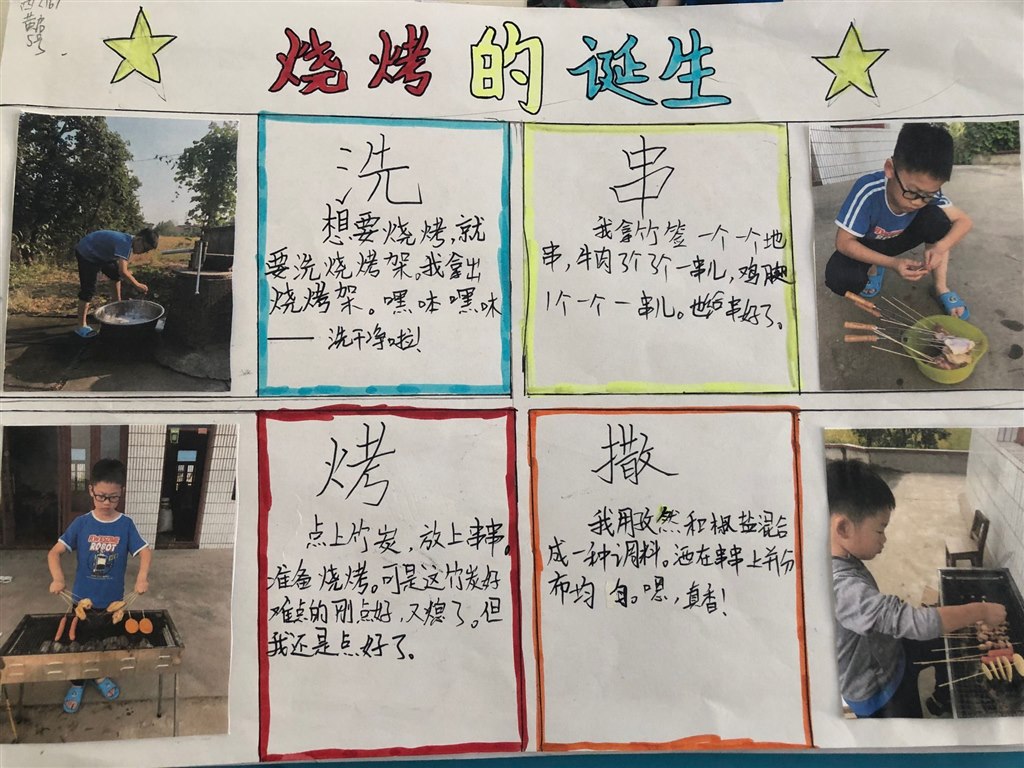 烧烤的诞生
洗
想要烧烤,就
要洗烧烤架。我拿出
烧烤架。嘿咻嘿咻
——洗干净啦!
串
我拿竹签一个一个地
串,牛肉3个3个一串儿,鸡腿
1个一个一串儿。也给串好了。
烤
点上竹炭,放上串串。
准备烧烤。可是这竹炭好
难点的刚点好,又熄了。但
我还是点好了。
撒
我用孜然和椒盐混合
成一种调料。洒在串串上并分
布均匀。嗯,真香!
ROBOT